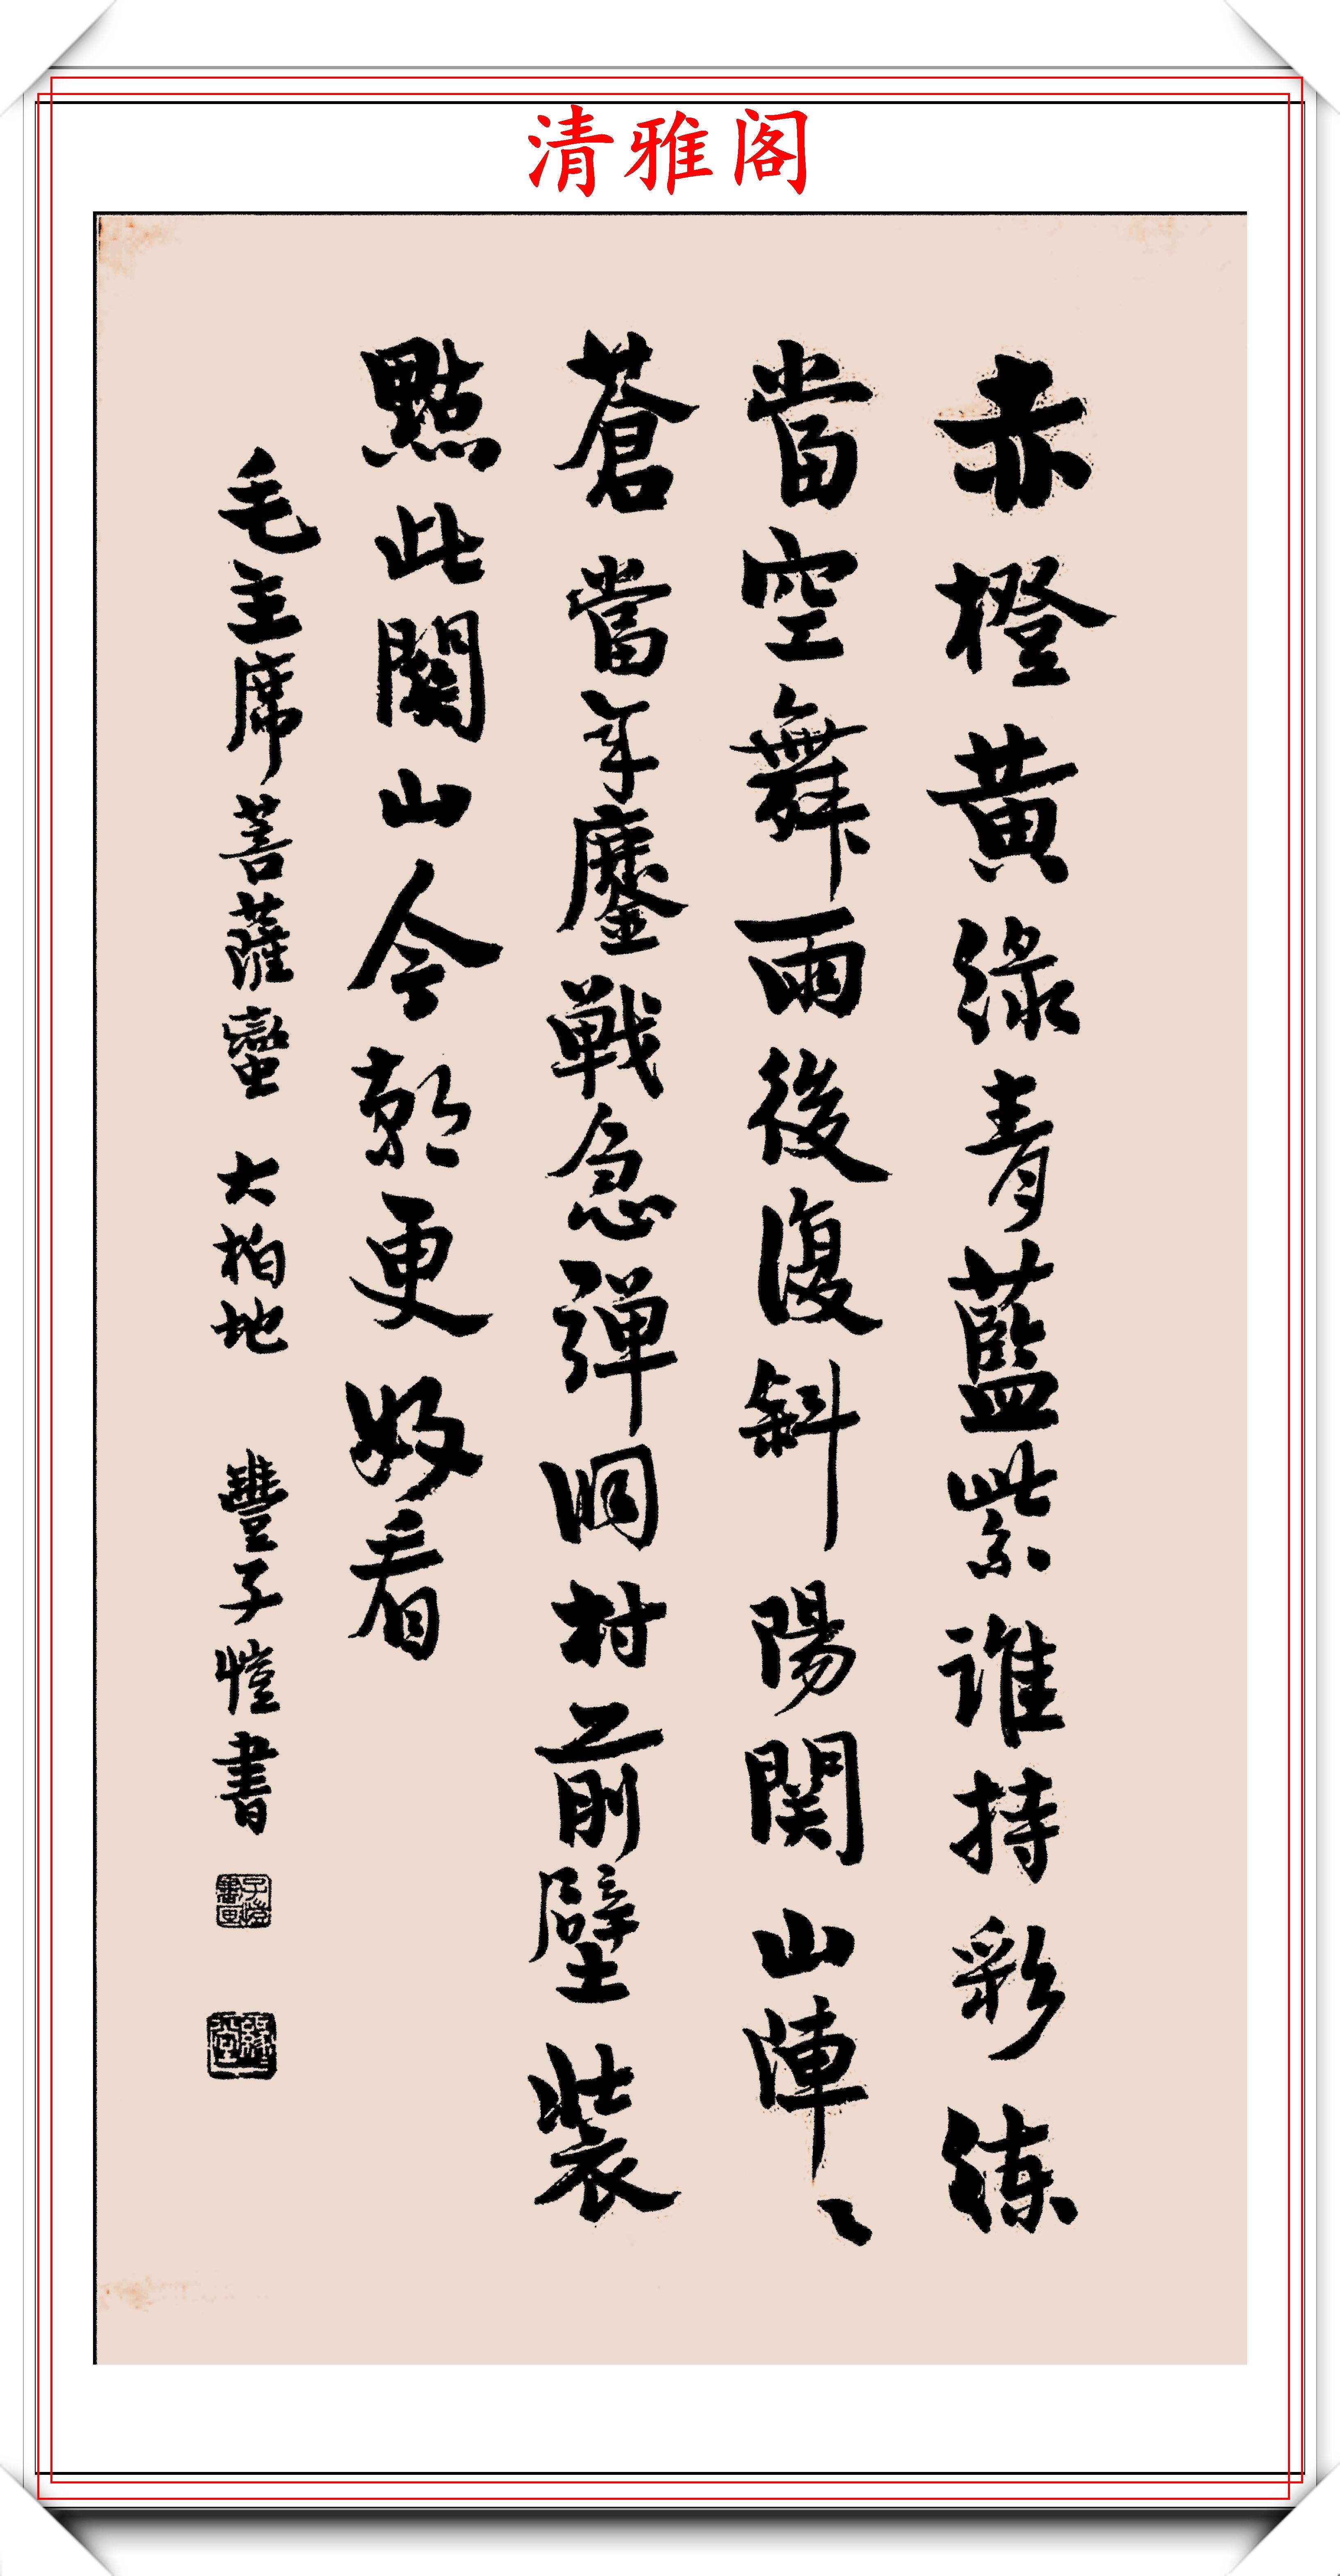 清雅阁
赤橙黃綠青藍紫谁持彩练
當空舞雨後復斜陽関山陣〻
蒼當年鏖戦急弾洞村前壁装
點此關山今朝更好看
毛主席菩薩蠻 大柏地 豐子愷書